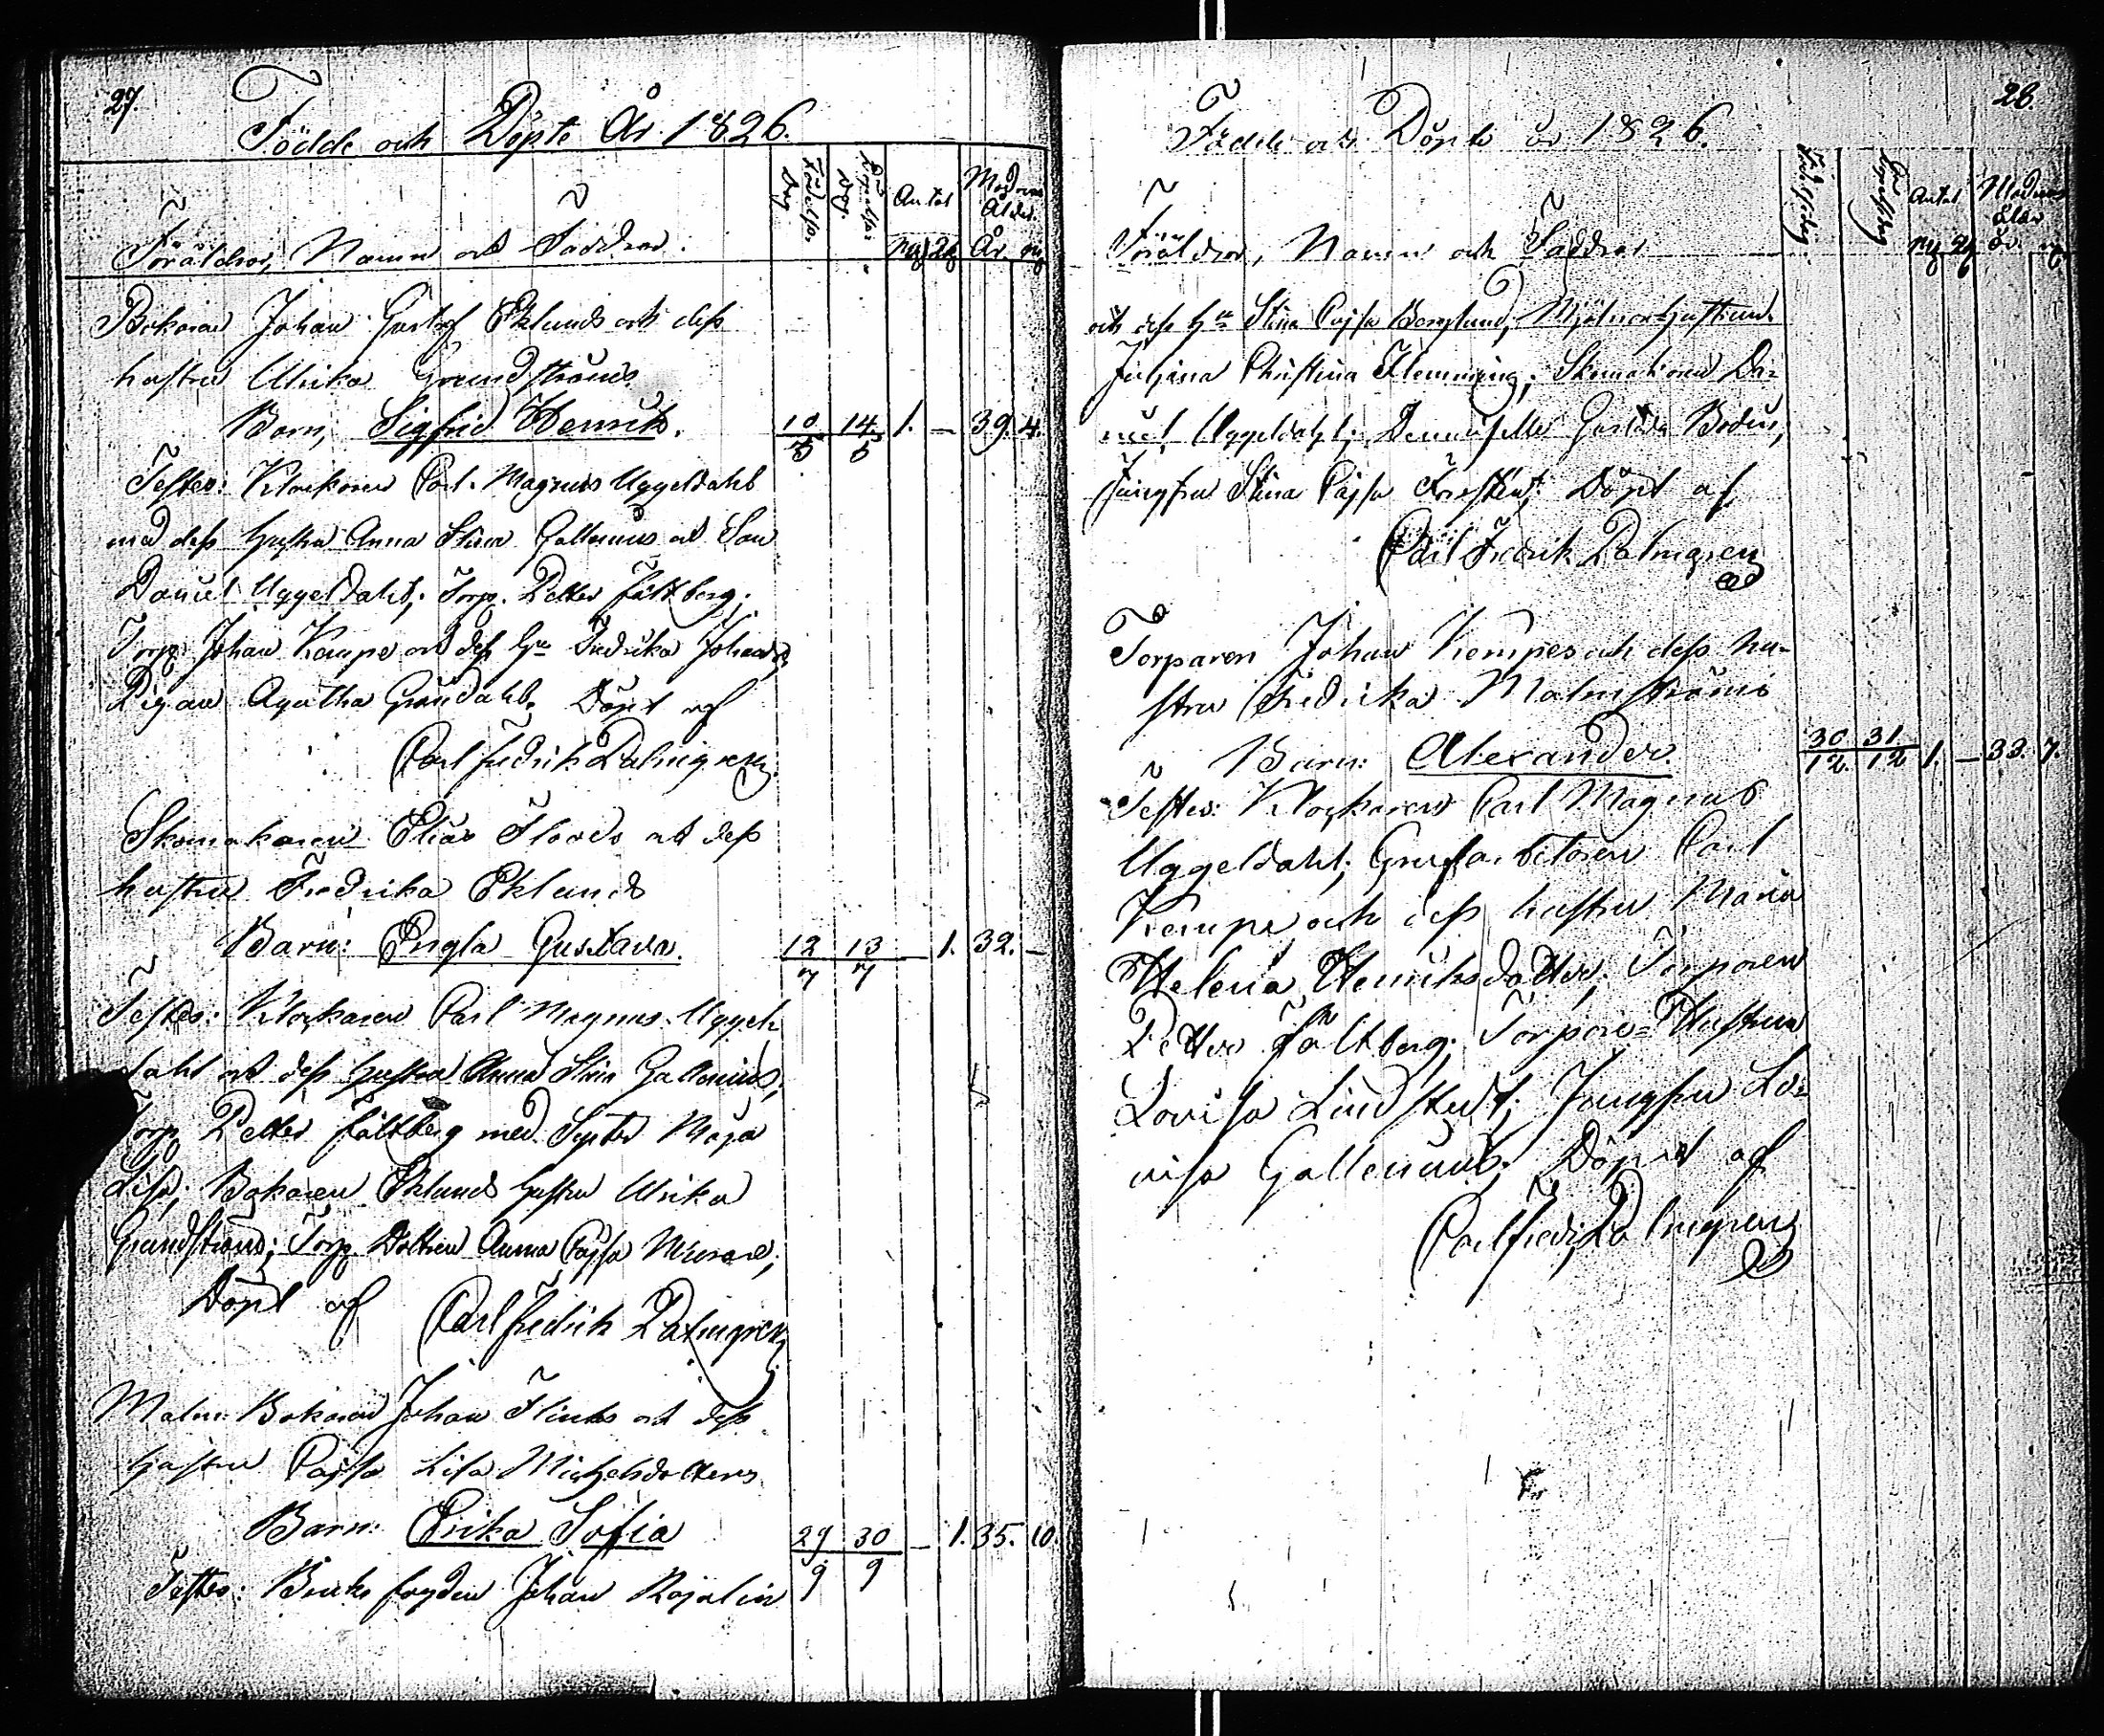 27.
Födde och Döpte År 1826.
Föräldrar, Namn och Faddrar.
Födelse Dag
Döpelse Dag.
Antal
Mk Qk
Modrens Ålder.
År. m
Bokaren Johan Gustaf Eklunds och dess
hustru Ulrika Grundströms
Barn, Sigfrid Henrik. 10/5 14/5 1. — 39. 4.
Testes: Klockaren Carl Magnus Uggeldahl
med dess hustru Anna Stina Gallenius och Son
Daniel Uggeldahl; Torp. Petter Fältberg;
Torp. Johan Kempe och dess Hu Fredrika Johansd.
Pigan Agatha Gröndahl. Döpt af
Carl Fredrik Palmgren
Skomakaren Elias Floods och dess
hustru Fredrika Eklunds
Barn: Engla Gustava. 12/7 13/7 — 1. 32. —
Testes: Klockaren Carl Magnus Uggel
dahl och dess hustru Anna Stina Gallenius,
Torp. Petter Fältberg med Syster Maja
Lisa; Bokaren Eklunds hustru Ulrika
Grundström; Torp. Dottren Anna Cajsa
Döpt af Carl Fredrik Palmgren
Malm Bokaren Johan Flinks och dess
hustru Cajsa Lisa Michelsdotters
Barn: Erika Sofia 29/9 30/9 — 1. 35. 10.
Testes: Bruks fogden Johan Rosalin
28.
Födde och Döpte år 1826.
Föräldrar, Namn och Faddrar
Antal
Modrens ålder
år m
och dess Hu Stina Cajsa Berglund; Mjölnar hustrun
Juliana Christina Flemming; Skomakaren Da=
niel Uggeldahl; Demoiselle Gustava Bodin,
Jungfru Stina Cajsa Forstén; Döpt af
Carl Fredrik Palmgren
Torparen Johan Kempes och dess hu-
stru Fredrika Malmströms
Barn: Alexander. 30/12. 31/12 1. — 33. 7.
Testes: Klockaren Carl Magnus
Uggeldahl; Gruf arbetaren Carl
Kempe och dess hustru Maria
Helena Henriksdotter; Torparen
Petter Fältberg; Torpare=Hustrun
Lovisa Lindstedt; Jungfru Lo=
visa Gallenius; Döpt af
Carl Fredr. Palmgren